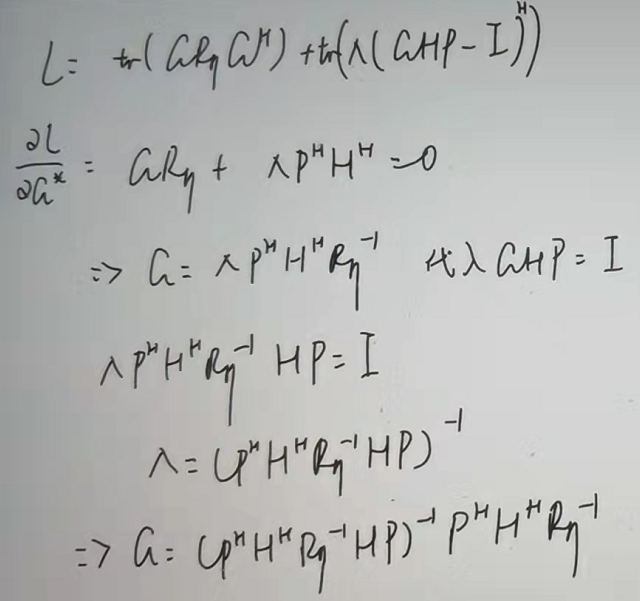 L = tr(GRηG^H) + tr(λ(GHP - I)^H)
∂L/∂G* = GRη + λP^H H^H = 0
=> G = λP^H H^H Rη^-1 代入 GHP = I
λP^H H^H Rη^-1 HP = I
λ = (P^H H^H Rη^-1 HP)^-1
=> G = (P^H H^H Rη^-1 HP)^-1 P^H H^H Rη^-1